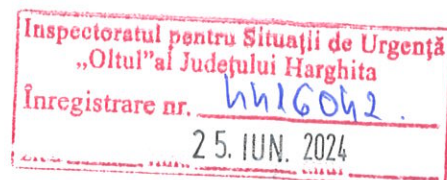 Inspectoratul pentru Situații de Urgență
„Oltul”al Județului Harghita
Înregistrare nr.
25. IUN. 2024